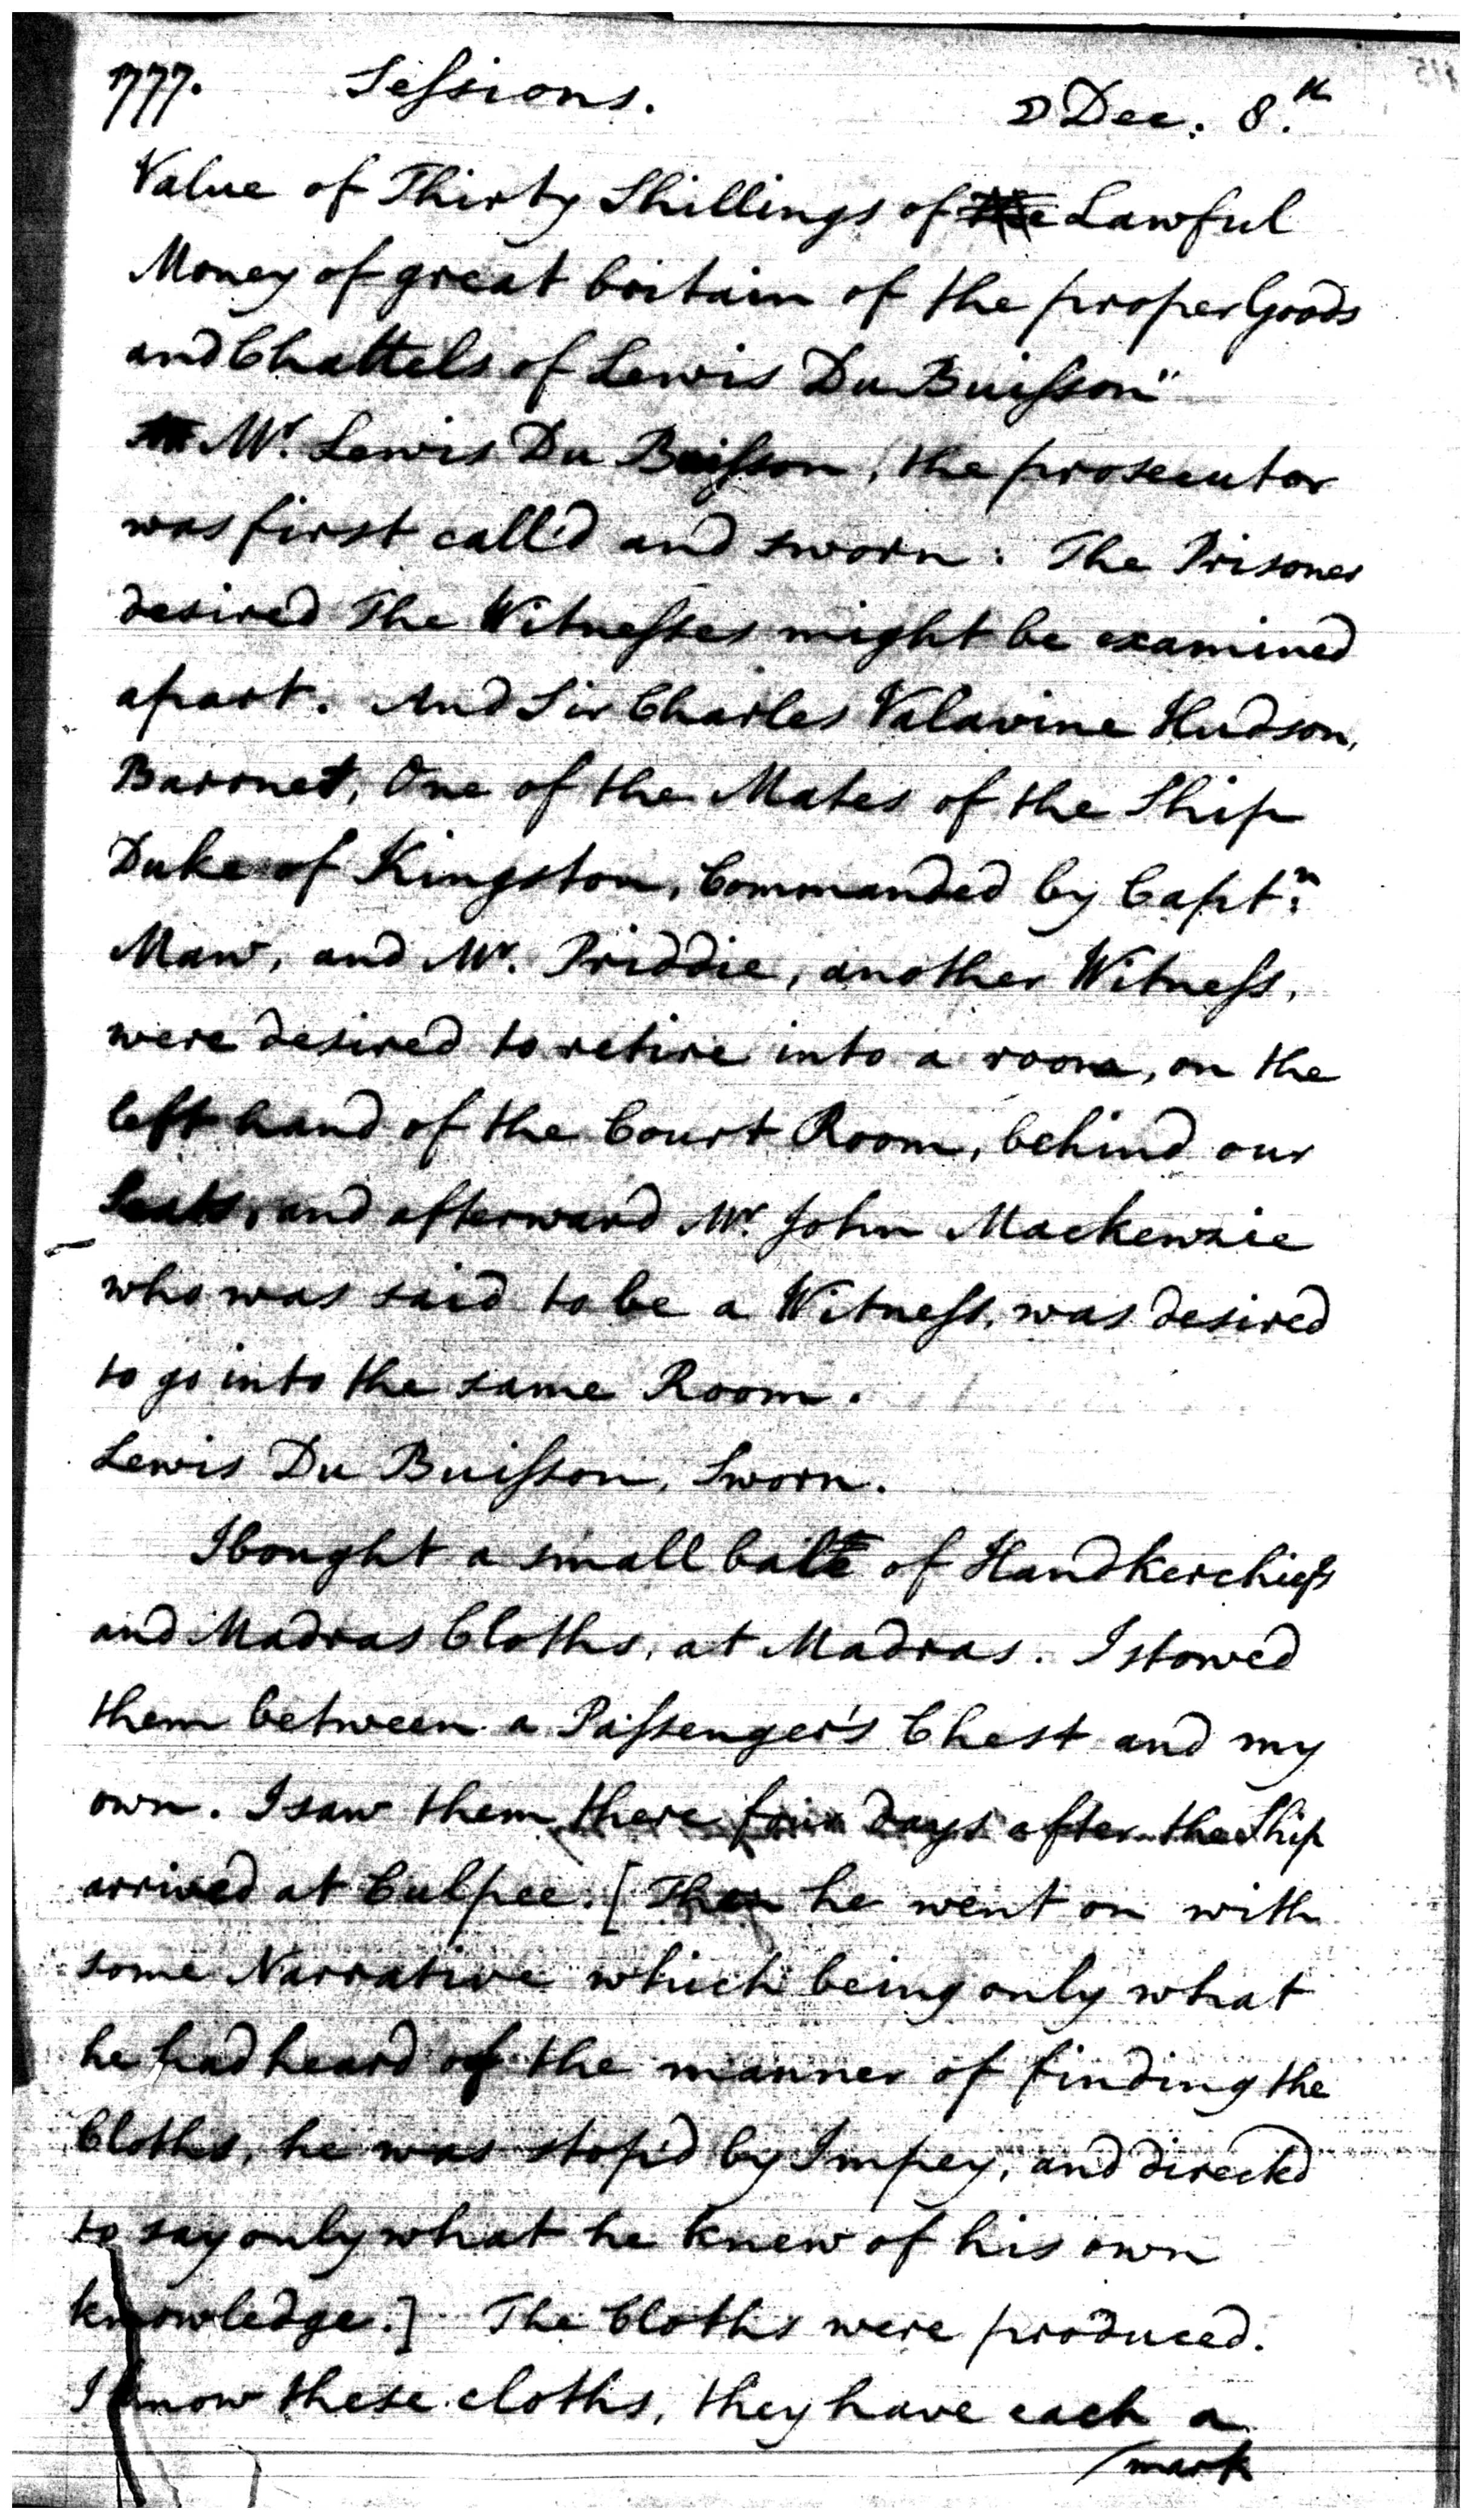 1777. Sessions. ☽ Dec: 8.th
Value of Thirty Shillings of the Lawful
Money of great britain of the proper Goods
and Chattels of Lewis Du Buisson"
Mr. Lewis Du Buisson, the prosecutor
was first call'd and sworn: The Prisoner
desired The Witnesses might be examined
apart. And Sir Charles Valavine Hudson,
Barronet, One of the Mates of the Ship
Duke of Kingston, Commanded by Capt:n
Maw, and Mr. Priddie, another Witness,
were desired to retire into a room, on the
left hand of the Court Room, behind our
Seats, and afterward Mr. John Mackenzie
who was said to be a Witness, was desired
to go into the same Room.
Lewis Du Buisson, Sworn.
I bought a small bale of Handkerchiefs
and Madras Cloths, at Madras. I stowed
them between a Passenger's Chest and my
own. I saw them there four days after the Ship
arrived at Culpee. [Then he went on with
some Narrative which being only what
he had heard of the manner of finding the
Cloths, he was stop'd by Impey, and directed
to say only what he knew of his own
knowledge.] The Cloths were produced.
I know these cloths, they have each a
/mark